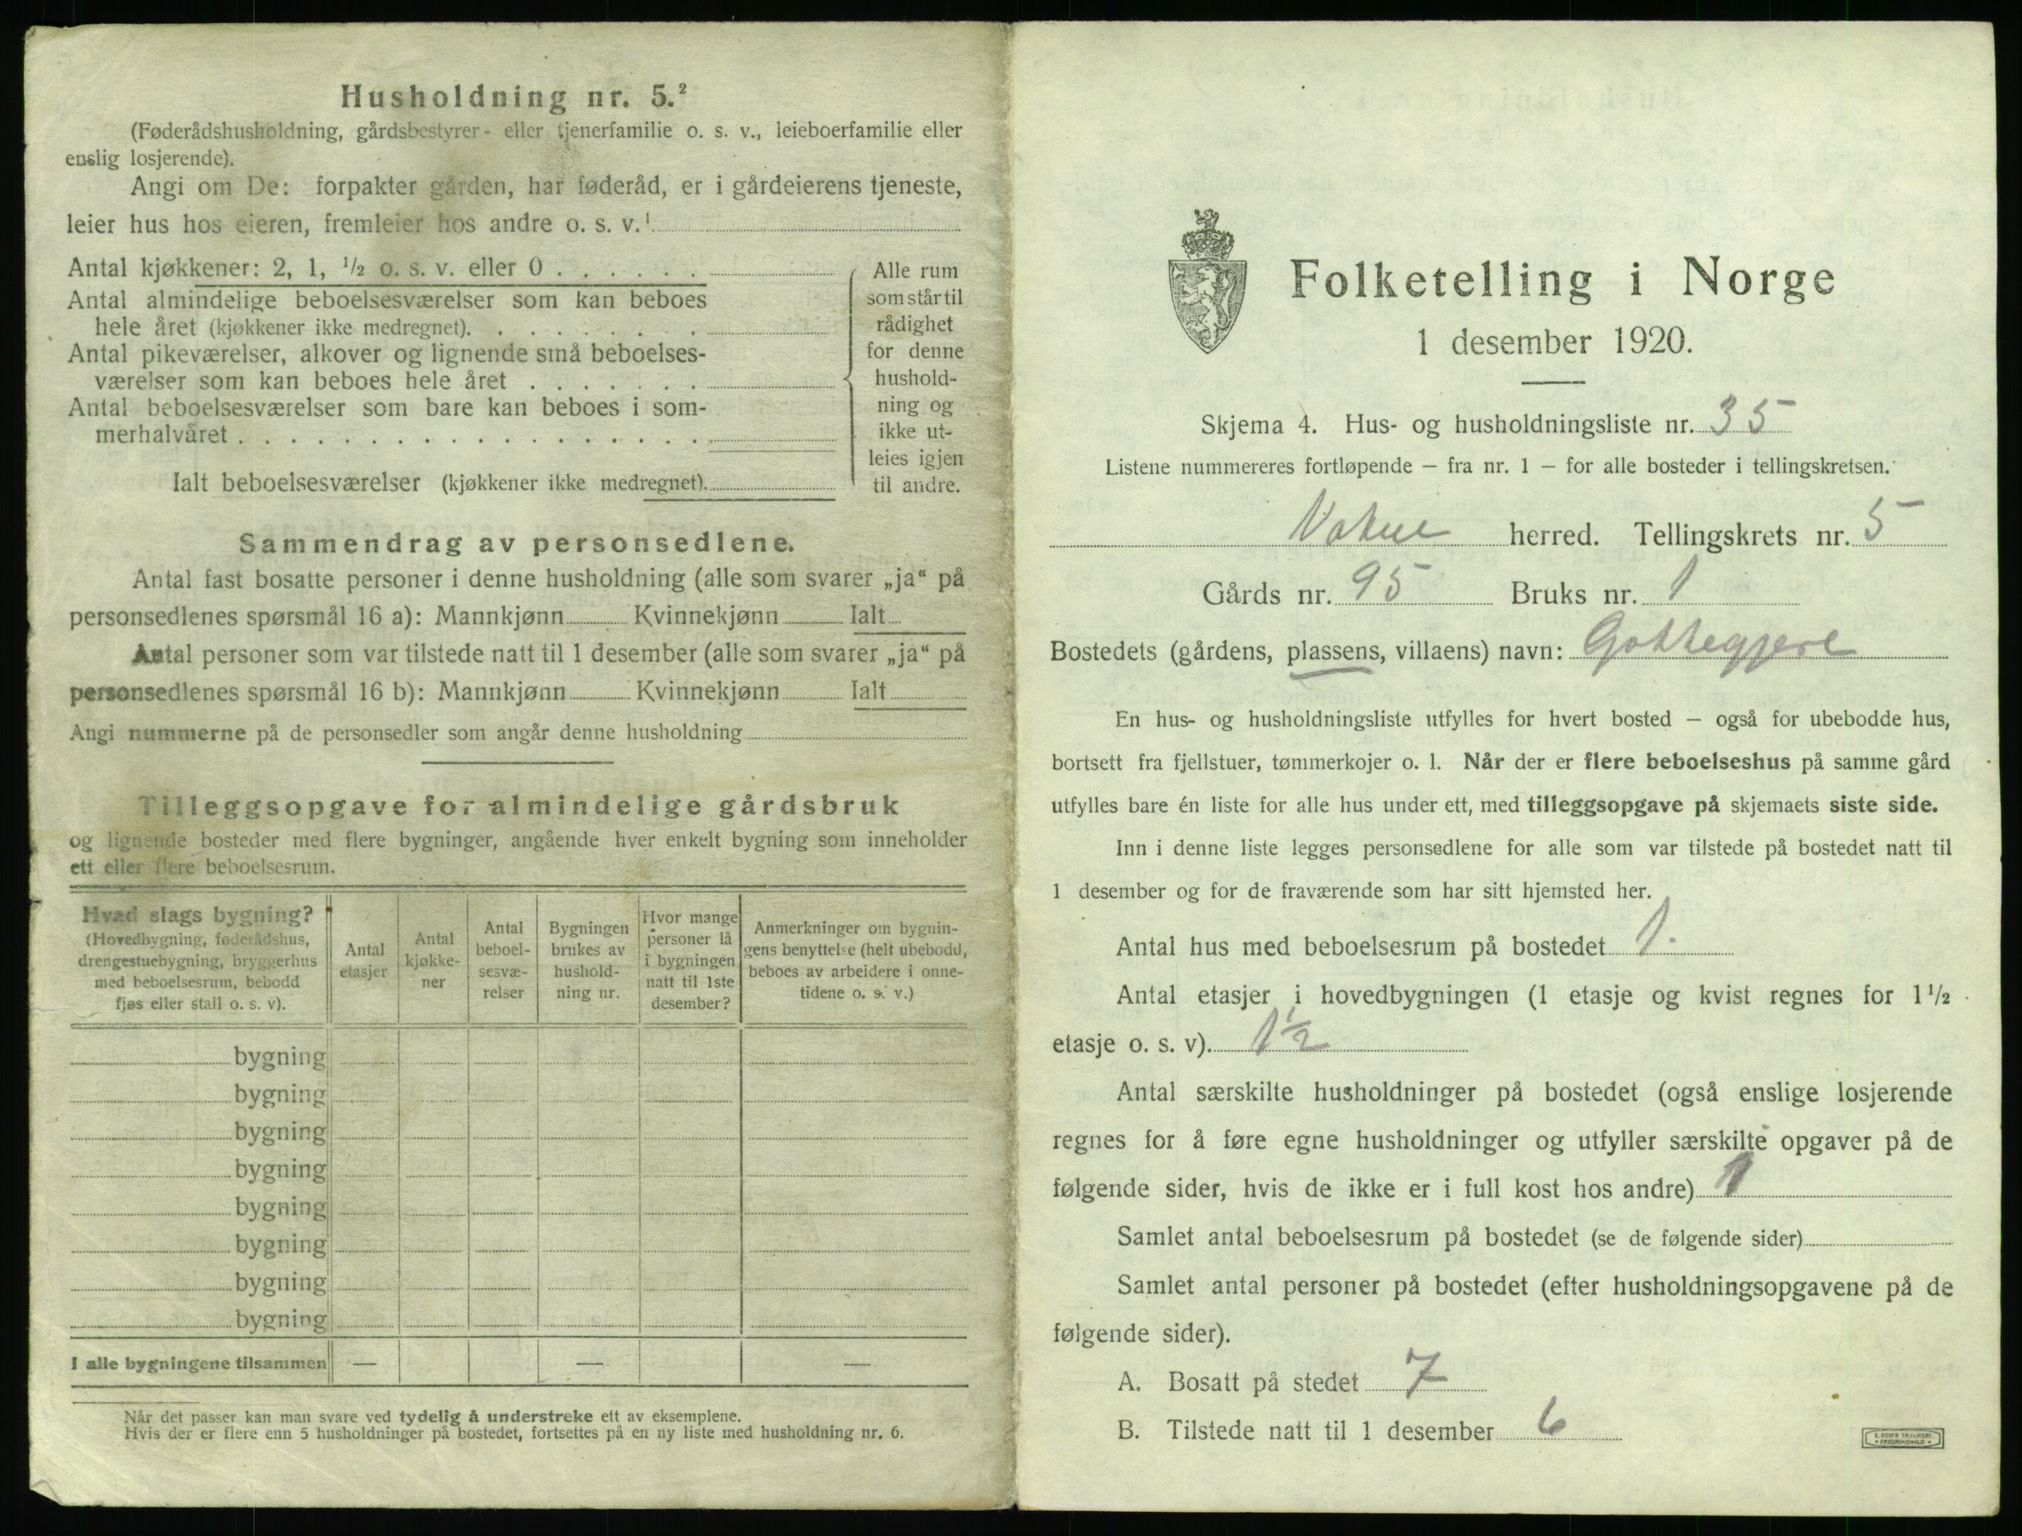 Husholdning nr. 5.²
(Føderådshusholdning, gårdsbestyrer- eller tjenerfamilie o. s. v., leieboerfamilie eller
enslig losjerende).
Angi om De: forpakter gården, har føderåd, er i gårdeierens tjeneste,
leier hus hos eieren, fremleier hos andre o. s. v.¹
Antal kjøkkener: 2, 1, ½ o. s. v. eller 0 . . . . . .
Antal almindelige beboelsesværelser som kan beboes
hele året (kjøkkener ikke medregnet). . . . . . . . .
Antal pikeværelser, alkover og lignende små beboelses-
værelser som kan beboes hele året . . . . . . .
Antal beboelsesværelser som bare kan beboes i som-
merhalvåret . . . . . . . . . . . . . . . . . .
Ialt beboelsesværelser (kjøkkener ikke medregnet).
Alle rum
som står til
rådighet
for denne
hushold-
ning og
ikke ut-
leies igjen
til andre.
Sammendrag av personsedlene.
Antal fast bosatte personer i denne husholdning (alle som svarer „ja“ på
personsedlenes spørsmål 16 a): Mannkjønn Kvinnekjønn Ialt
Antal personer som var tilstede natt til 1 desember (alle som svarer „ja“ på
personsedlenes spørsmål 16 b): Mannkjønn Kvinnekjønn Ialt
Angi nummerne på de personsedler som angår denne husholdning
Tilleggsopgave for almindelige gårdsbruk
og lignende bosteder med flere bygninger, angående hver enkelt bygning som inneholder
ett eller flere beboelsesrum.
Hvad slags bygning?
(Hovedbygning, føderådshus,
drengestuebygning, bryggerhus
med beboelsesrum, bebodd
fjøs eller stall o. s. v).
Antal
etasjer
Antal
kjøkke-
ner
Antal
beboel-
sesvæ-
relser
Bygningen
brukes av
hushold-
ning nr.
Hvor mange
personer lå
i bygningen
natt til 1ste
desember?
Anmerkninger om bygnin-
gens benyttelse (helt ubebodd,
beboes av arbeidere i onne-
tidene o. s. v.)
bygning
bygning
bygning
bygning
bygning
bygning
bygning
bygning
I alle bygningene tilsammen — — —
Når det passer kan man svare ved tydelig å understreke ett av eksemplene.
Hvis der er flere enn 5 husholdninger på bostedet, fortsettes på en ny liste med husholdning nr. 6.
Folketelling i Norge
1 desember 1920.
Skjema 4. Hus- og husholdningsliste nr. 35
Listene nummereres fortløpende – fra nr. 1 – for alle bosteder i tellingskretsen.
herred. Tellingskrets nr. 5
Gårds nr. 95 Bruks nr. 1
Bostedets (gårdens, plassens, villaens) navn:
En hus- og husholdningsliste utfylles for hvert bosted – også for ubebodde hus,
bortsett fra fjellstuer, tømmerkojer o. l. Når der er flere beboelseshus på samme gård
utfylles bare én liste for alle hus under ett, med tilleggsopgave på skjemaets siste side.
Inn i denne liste legges personsedlene for alle som var tilstede på bostedet natt til
1 desember og for de fraværende som har sitt hjemsted her.
Antal hus med beboelsesrum på bostedet 1.
Antal etasjer i hovedbygningen (1 etasje og kvist regnes for 1½
etasje o. s. v). 1½
Antal særskilte husholdninger på bostedet (også enslige losjerende
regnes for å føre egne husholdninger og utfyller særskilte opgaver på de
følgende sider, hvis de ikke er i full kost hos andre) 1
Samlet antal beboelsesrum på bostedet (se de følgende sider)
Samlet antal personer på bostedet (efter husholdningsopgavene på de
følgende sider).
A. Bosatt på stedet 7
B. Tilstede natt til 1 desember 6